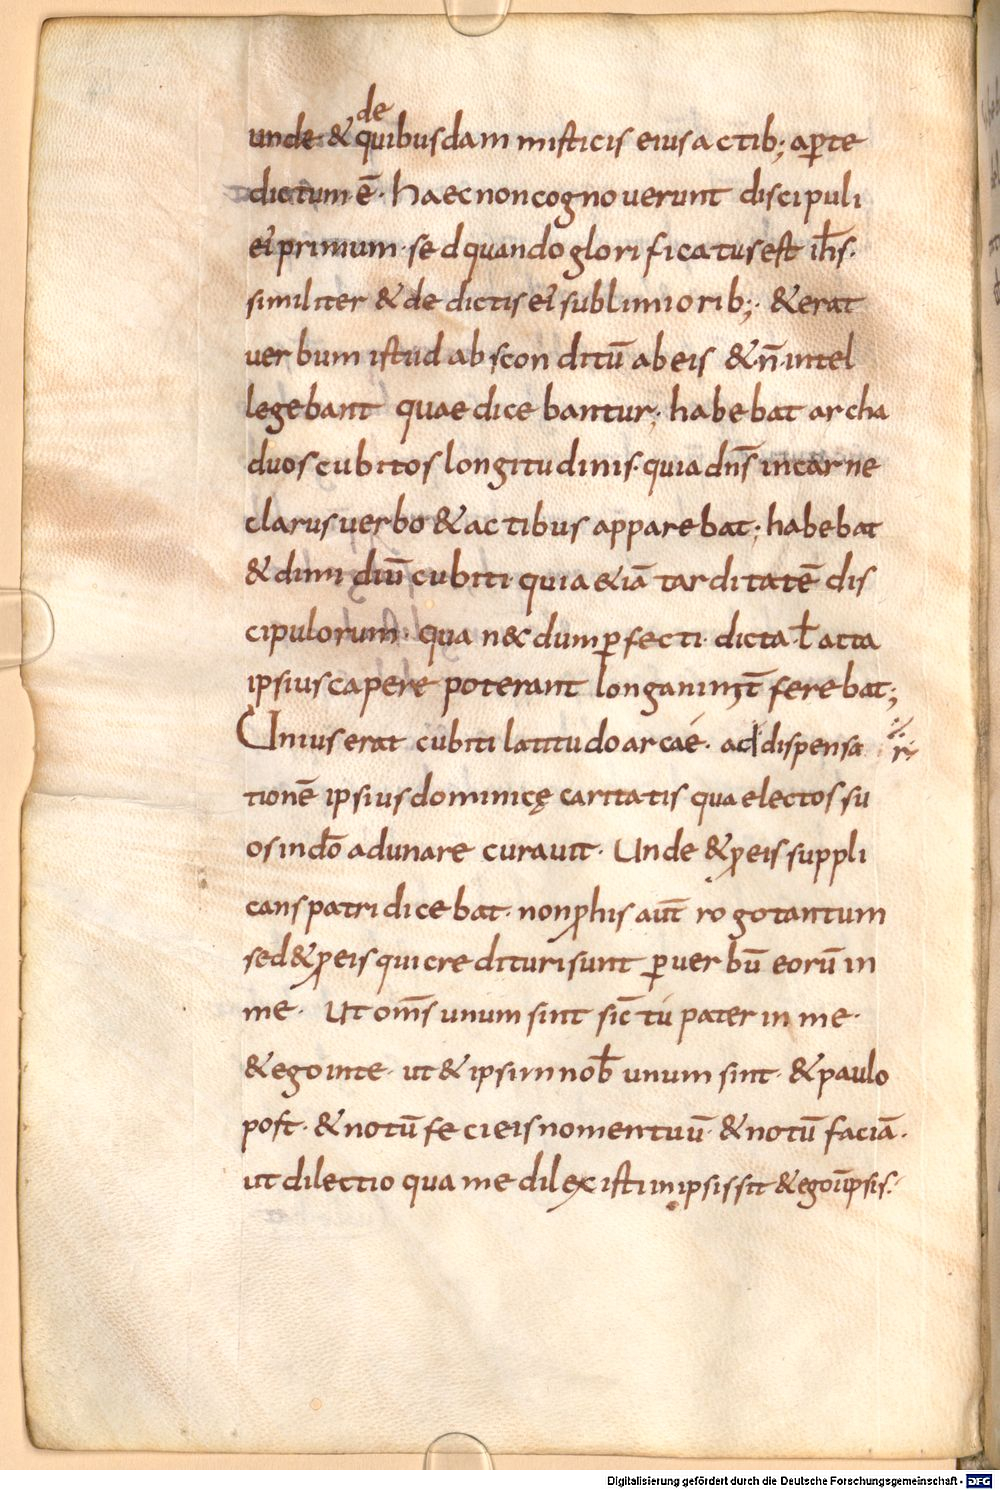 de
unde & quibusdam misticis eius actib; aꝑte
dictum ē· Haec non cognoverunt discipuli
ei primum· sed quando glorificatus est ih̄s·
similiter & de dictis ei sublimiorib;· & erat
verbum istud absconditū ab eis & n̄ intel
legebant quae dicebantur; habebat archa
duos cubitos longitudinis· quia dn̄s in carne
clarus verbo & actibus apparebat; habebat
& dimidiū cubiti· quia &iā tarditatē dis
cipulorum· qua n&dum ꝑfecti· dicta ł acta
ipsius capere poterant longanimit̄ ferebat;
Unius erat cubiti latitudo arcae· ad dispensa
r
tionē ipsius dominicę caritatis qua electos su
os in dō adunare curavit· Unde & ꝓ eis suppli
cans patri dicebat· non ꝓ his aūt rogo tantum
sed & ꝓ eis qui credituri sunt ꝑ verbū eorū in
me· Ut om̄s unum sint sic̄ tú pater in me·
& ego in te· ut & ipsi in nob̄ unum sint· & paulo
post· & notū feci eis nomen tuū· & notū faciā·
ut dilectio qua me dilexisti in ipsis sit & ego ī ipsis·
Digitalisierung gefördert durch die Deutsche Forschungsgemeinschaft - DFG